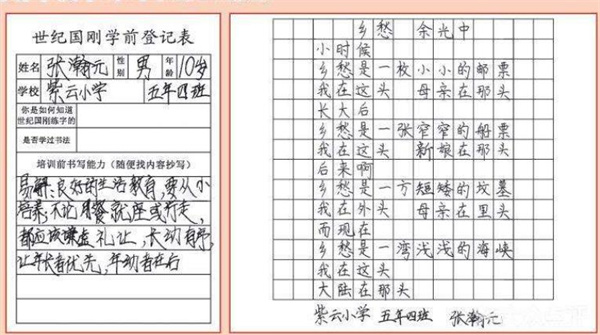 世纪国刚学前登记表
姓名 张瀚元 性别 男 年龄 10岁
学校 紫云小学 五年四班
你是如何知道世纪国刚练字的
是否学过书法
培训前书写能力（随便找内容抄写）
易解:良好的生活教育,要从小
培素,不论用餐就座或行走,
都应该谦虚礼让,长幼有序,
让年长者优先,年幼者在后
乡愁 余光中
小时候
乡愁是一枚小小的邮票
我在这头 母亲在那头
长大后
乡愁是一张窄窄的船票
我在这头 新娘在那头
后来啊
乡愁是一方短矮的坟墓
我在外头 母亲在里头
而现在
乡愁是一湾浅浅的海峡
我在这头
大陆在那头
紫云小学 五年四班 张瀚元